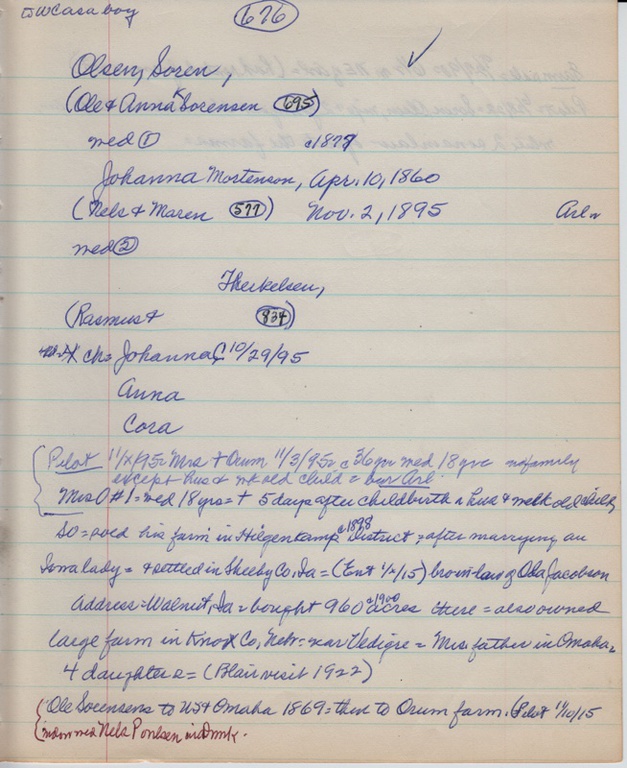 676
Olsen, Soren,
(Ole & Anna Sorensen 695)
med ① c1877
Johanna Mortenson, Apr. 10, 1860
(Nels & Maren 577) Nov. 2, 1895 Arl
med ②
Therkelsen,
(Rasmus & 834)
ch = Johanna 10/29/95
Anna
Cora
Pilot 11/ /95 = Mrs + Orum 11/3/95 = c 36 yr med 18 yrs no family
except hus & wk old child = bur Arl.
Mrs O #1 = med 18 yrs = + 5 days after childbirth hus & week old child
SO = sold his farm in Hilgenkamp c1898 District, after marrying an
Iowa lady = & settled in Shelby Co, Ia = (Ent 1/ /15) bro-in-law of Oda Jacobson
Address = Walnut, Ia = bought 960 acres c1900 there = also owned
large farm in Knox Co, Nebr = near Verdigre = Mrs. father in Omaha
4 daughters = (Blair visit 1922)
Ole Sorensens to US & Omaha 1869 = then to Orum farm. (Pilot 11/10/15
med Nels Poulsen in Dnmk.